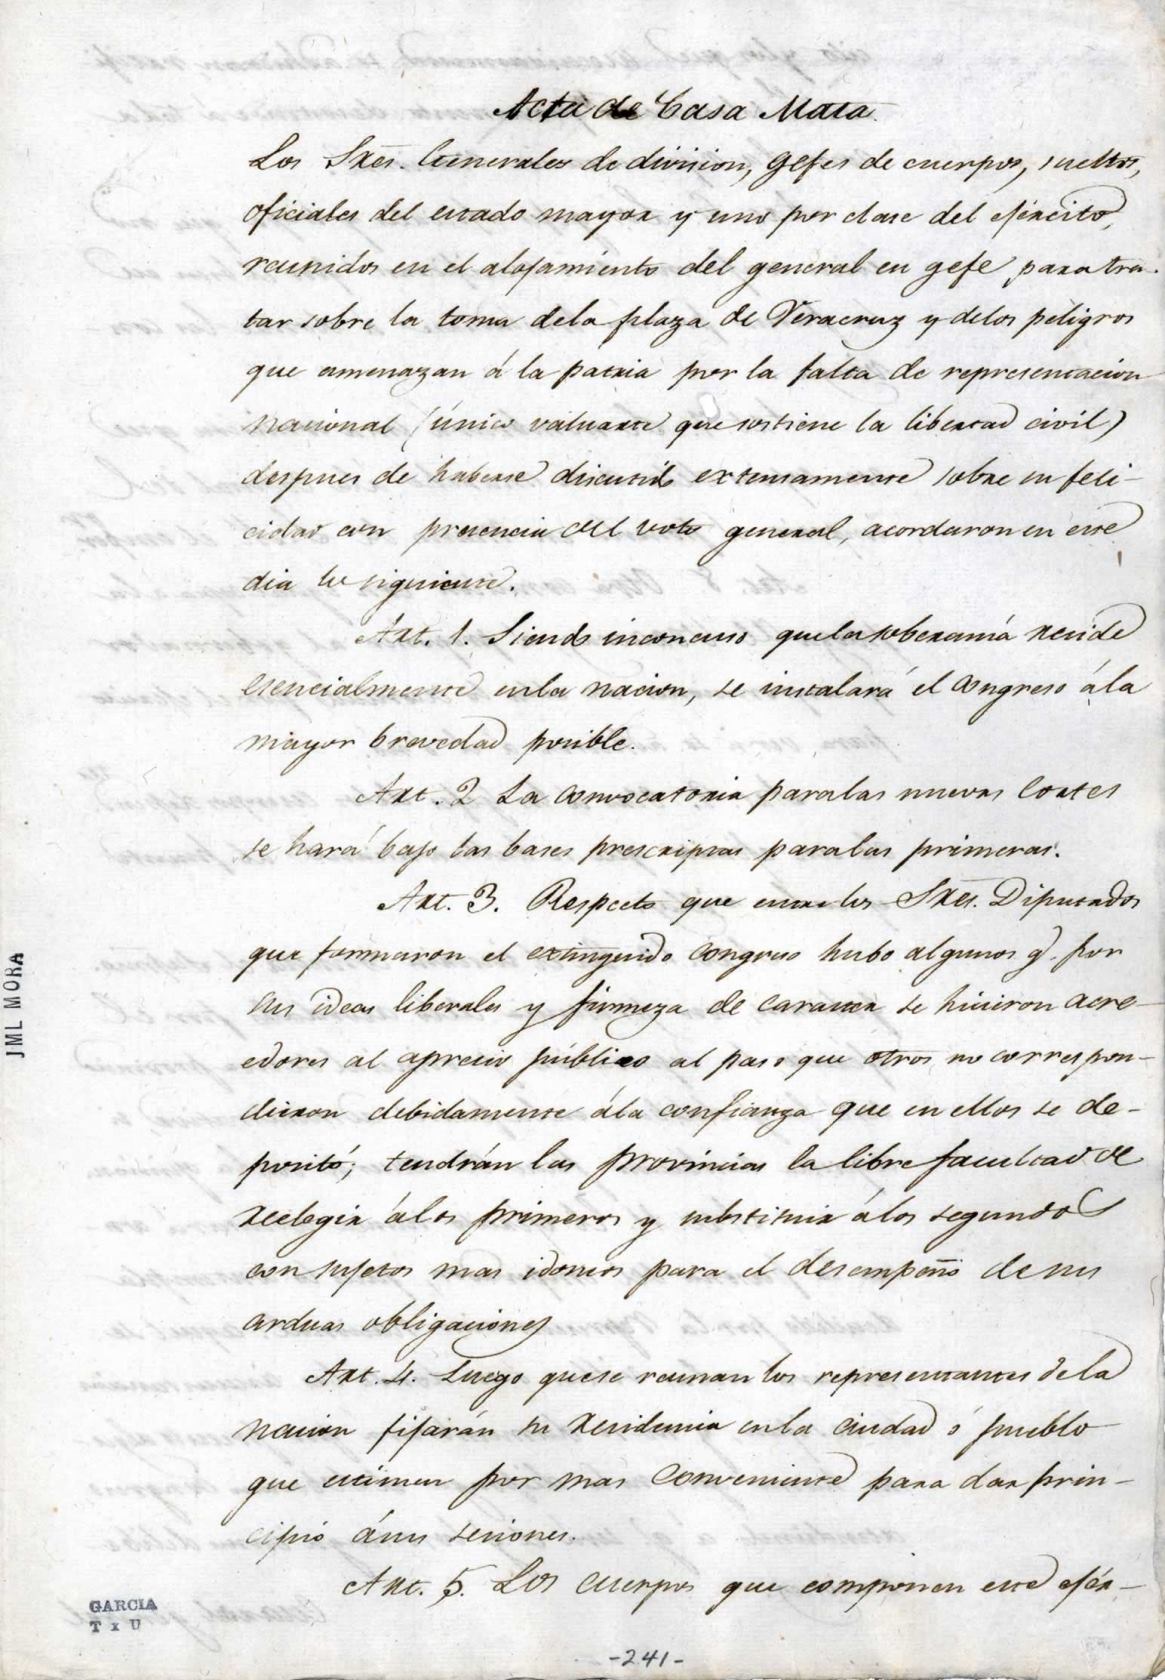 Acta de Casa Mata.
Los Sres. Generales de division, gefes de cuerpos, sueltos,
oficiales del estado mayor y uno por clase del ejército,
reunidos en el alojamiento del general en gefe para tra-
tar sobre la toma dela plaza de Veracruz y delos peligros
que amenazan á la patria por la falta de representacion
nacional (único valuarte que sostiene la libertad civil)
despues de haberse discutido extensamente sobre su feli-
cidad con presencia del voto general, acordaron en este
dia lo siguiente.
Art. 1. Siendo inconcuso quela soberanía reside
esencialmente enla nacion, se instalará el congreso ála
mayor brevedad posible.
Art. 2 La convocatoria paralas nuevas Cortes
se hará bajo las bases prescriptas paralas primeras.
Art. 3. Respecto que entre los Sres. Diputados
que formaron el extinguido congreso hubo algunos q. por
sus ideas liberales y firmeza de caracter se hicieron acre-
edores al aprecio público al paso que otros no correspon-
dieron debidamente ála confianza que en ellos se de-
positó; tendrán las provincias la libre facultad de
reelegir álos primeros y substituir álos segundos
con sujetos mas idoneos para el desempeño de sus
arduas obligaciones
Art. 4. Luego quese reunan los representantes dela
nacion fijarán su residencia enla ciudad ó pueblo
que estimen por mas conveniente para dar prin-
cipio ásus sesiones.
Art. 5. Los cuerpos que componen este ejér-
JML MORA
GARCIA
T x U
-241-